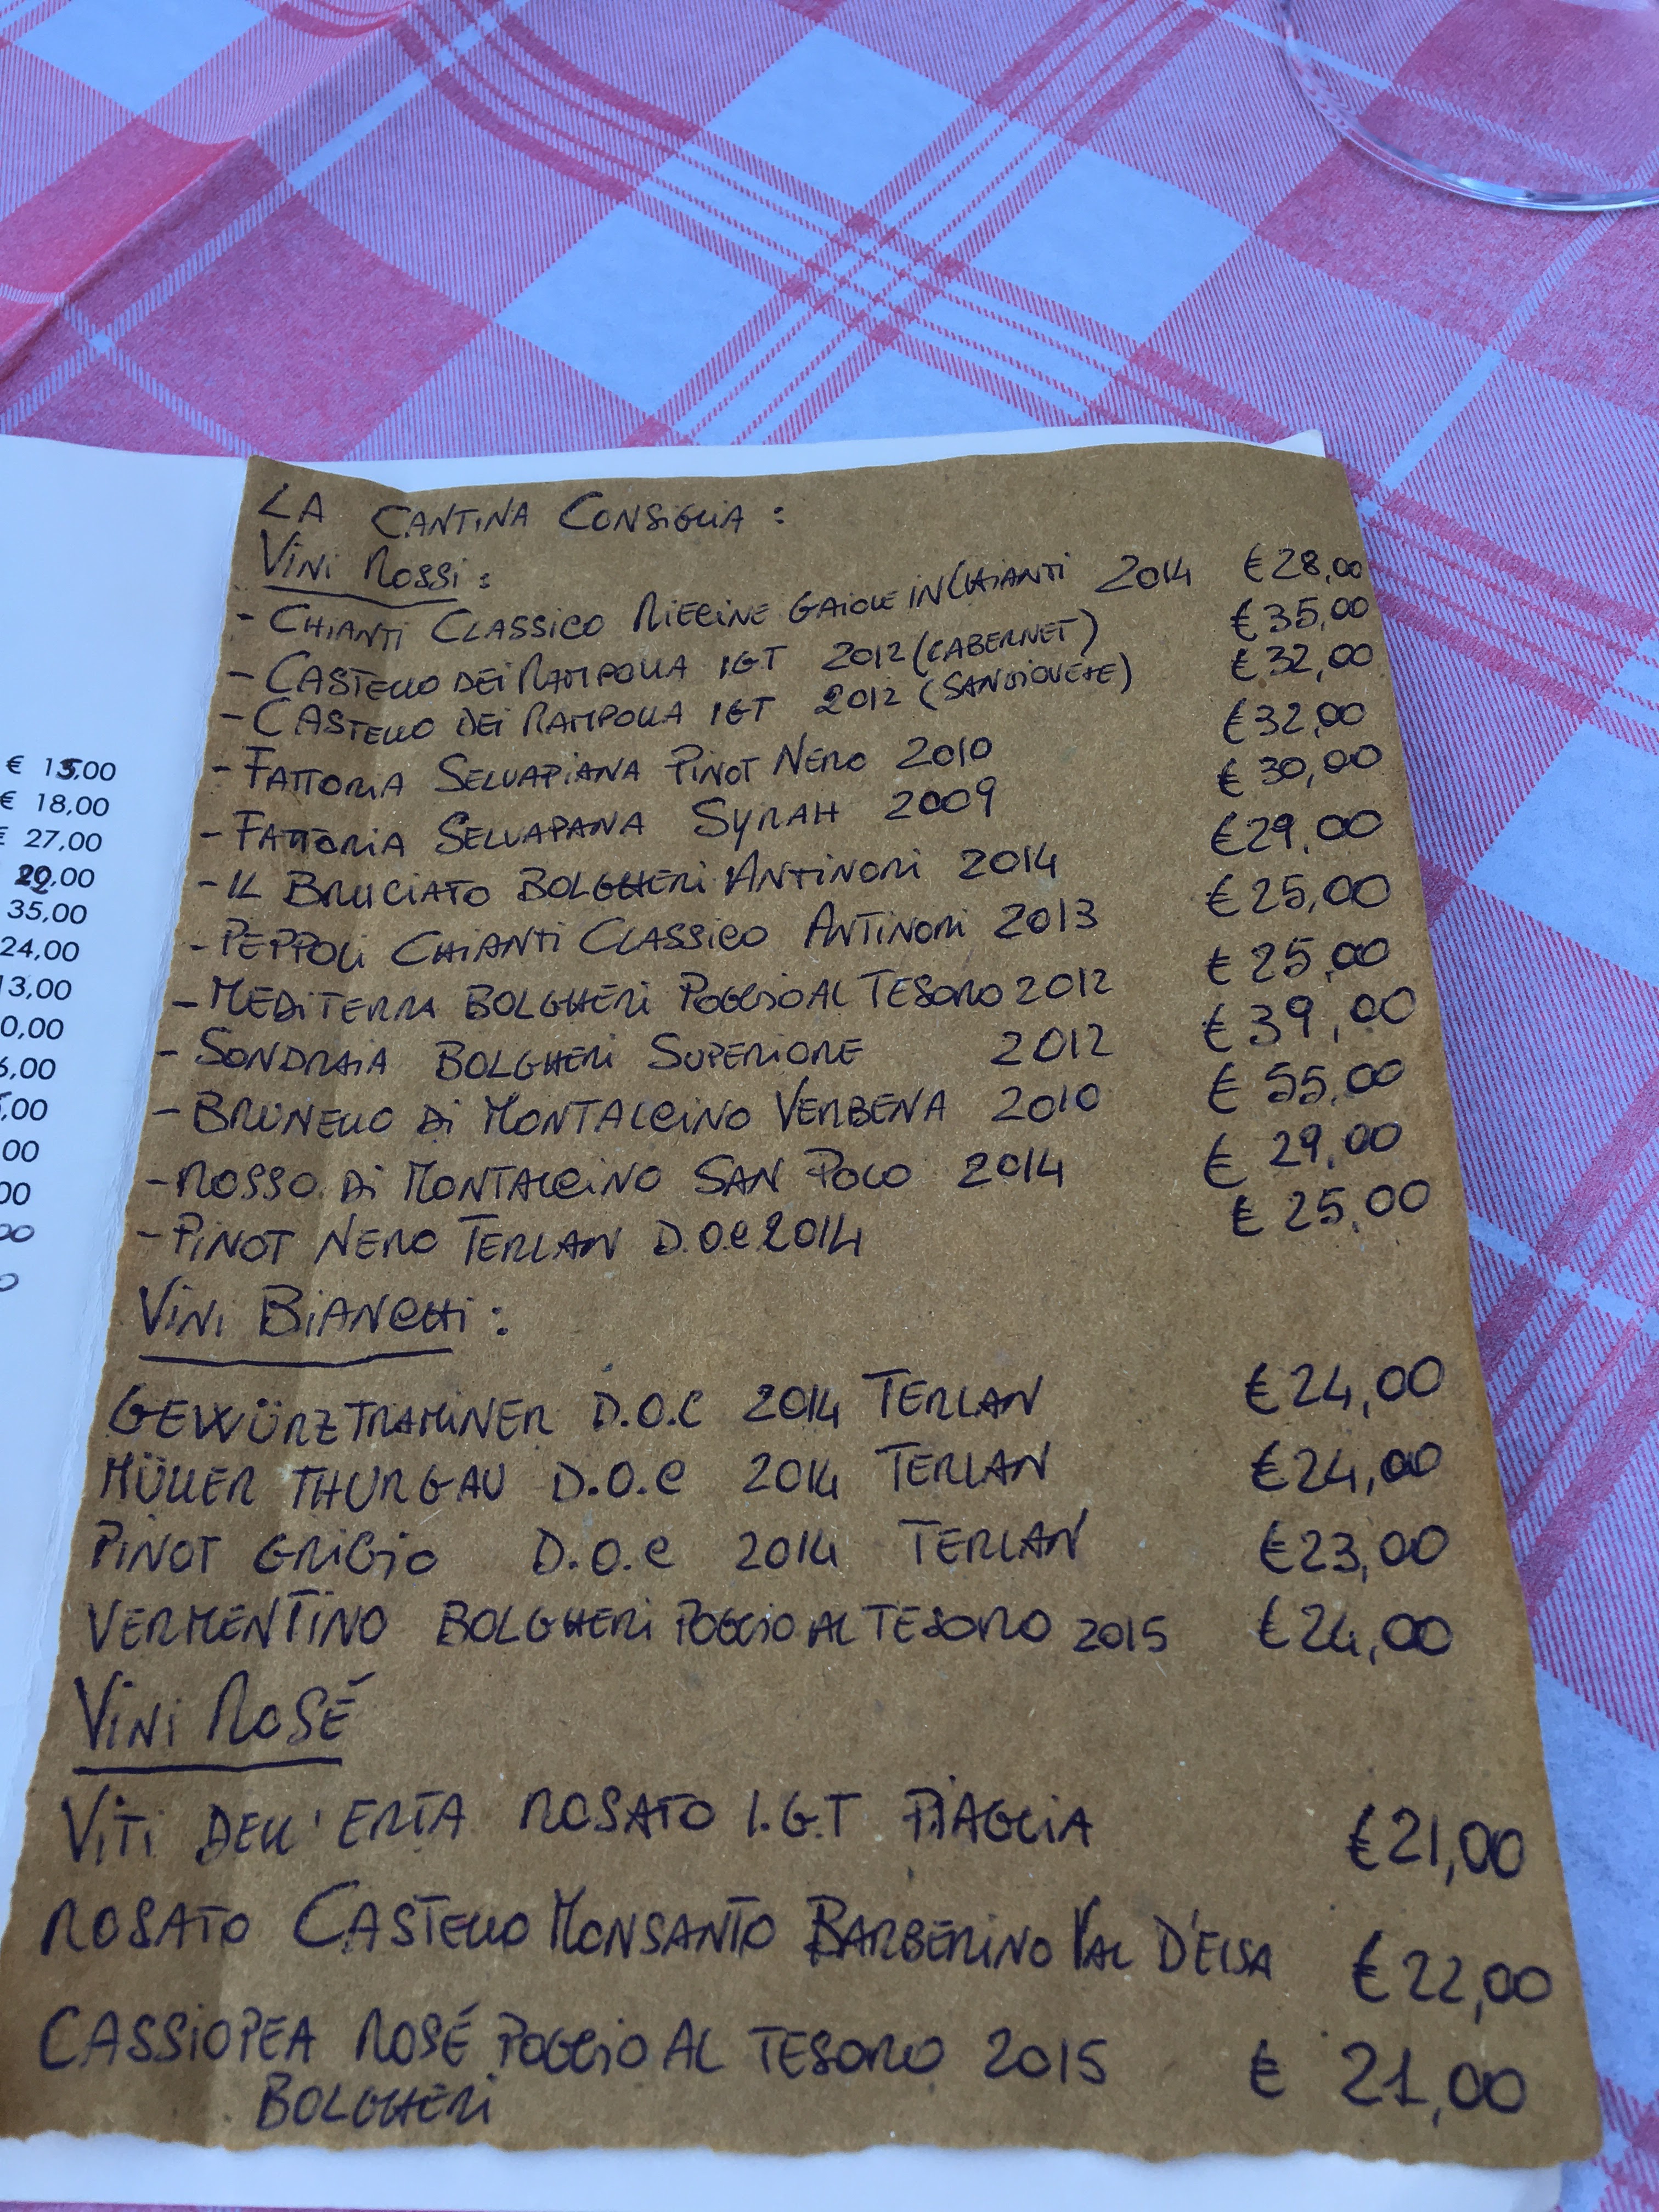 LA CANTINA CONSIGLIA :
VINI ROSSI :
- CHIANTI CLASSICO RIECINE GAIOLE IN CHIANTI 2014 € 28,00
- CASTELLO DEI RAMPOLLA IGT 2012 (CABERNET) € 35,00
- CASTELLO DEI RAMPOLLA IGT 2012 (SANGIOVESE) € 32,00
- FATTORIA SELVAPIANA PINOT NERO 2010 € 32,00
- FATTORIA SELVAPANA SYRAH 2009 € 30,00
- IL BRUCIATO BOLGHERI ANTINORI 2014 € 29,00
- PEPPOLI CHIANTI CLASSICO ANTINORI 2013 € 25,00
- MEDITERRA BOLGHERI POGGIO AL TESORO 2012 € 25,00
- SONDRAIA BOLGHERI SUPERIORE 2012 € 39,00
- BRUNELLO DI MONTALCINO VERBENA 2010 € 55,00
- ROSSO DI MONTALCINO SAN POLO 2014 € 29,00
- PINOT NERO TERLAN D.O.C 2014 € 25,00
VINI BIANCHI :
GEWÜRZTRAMINER D.O.C 2014 TERLAN € 24,00
MÜLLER THURGAU D.O.C 2014 TERLAN € 24,00
PINOT GRIGIO D.O.C 2014 TERLAN € 23,00
VERMENTINO BOLGHERI POGGIO AL TESORO 2015 € 24,00
VINI ROSÉ
VITI DELL'ERTA ROSATO I.G.T PIAGGIA € 21,00
ROSATO CASTELLO MONSANTO BARBERINO VAL D'ELSA € 22,00
CASSIOPEA ROSÉ POGGIO AL TESORO 2015 € 21,00
BOLGHERI
€ 15,00
€ 18,00
€ 27,00
35,00
24,00
13,00
0,00
6,00
,00
00
00
00
0